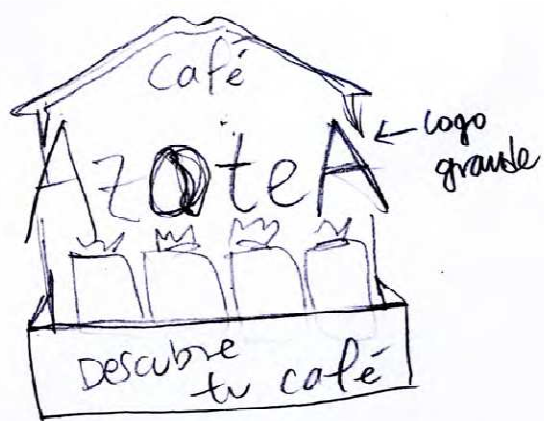 Café
AzoteA
← Logo
grande
Descubre
tu café